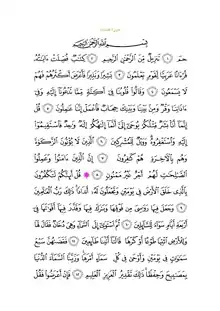 بِسْمِ اللَّهِ الرَّحْمَٰنِ الرَّحِيمِ
حم ١ تَنزِيلٌ مِّنَ الرَّحْمَٰنِ الرَّحِيمِ ٢ كِتَابٌ فُصِّلَتْ ءَايَاتُهُ
قُرْءَانًا عَرَبِيًّا لِّقَوْمٍ يَعْلَمُونَ ٣ بَشِيرًا وَنَذِيرًا فَأَعْرَضَ أَكْثَرُهُمْ فَهُمْ
لَا يَسْمَعُونَ ٤ وَقَالُوا قُلُوبُنَا فِي أَكِنَّةٍ مِّمَّا تَدْعُونَا إِلَيْهِ وَفِي
ءَاذَانِنَا وَقْرٌ وَمِنْ بَيْنِنَا وَبَيْنِكَ حِجَابٌ فَاعْمَلْ إِنَّنَا عَامِلُونَ ٥ قُلْ
إِنَّمَا أَنَا بَشَرٌ مِّثْلُكُمْ يُوحَىٰ إِلَيَّ أَنَّمَا إِلَٰهُكُمْ إِلَٰهٌ وَاحِدٌ فَاسْتَقِيمُوا
إِلَيْهِ وَاسْتَغْفِرُوهُ وَوَيْلٌ لِّلْمُشْرِكِينَ ٦ الَّذِينَ لَا يُؤْتُونَ الزَّكَوٰةَ
وَهُم بِالْءَاخِرَةِ هُمْ كَافِرُونَ ٧ إِنَّ الَّذِينَ ءَامَنُوا وَعَمِلُوا
الصَّالِحَاتِ لَهُمْ أَجْرٌ غَيْرُ مَمْنُونٍ ٨ قُلْ أَئِنَّكُمْ لَتَكْفُرُونَ
بِالَّذِي خَلَقَ الْأَرْضَ فِي يَوْمَيْنِ وَتَجْعَلُونَ لَهُ أَندَادًا ذَٰلِكَ رَبُّ الْعَالَمِينَ
٩ وَجَعَلَ فِيهَا رَوَاسِيَ مِن فَوْقِهَا وَبَارَكَ فِيهَا وَقَدَّرَ فِيهَا أَقْوَاتَهَا فِي
أَرْبَعَةِ أَيَّامٍ سَوَاءً لِّلسَّائِلِينَ ١٠ ثُمَّ اسْتَوَىٰ إِلَى السَّمَاءِ وَهِيَ دُخَانٌ فَقَالَ لَهَا
وَلِلْأَرْضِ ائْتِيَا طَوْعًا أَوْ كَرْهًا قَالَتَا أَتَيْنَا طَائِعِينَ ١١ فَقَضَاهُنَّ سَبْعَ
سَمَاوَاتٍ فِي يَوْمَيْنِ وَأَوْحَىٰ فِي كُلِّ سَمَاءٍ أَمْرَهَا وَزَيَّنَّا السَّمَاءَ الدُّنْيَا
بِمَصَابِيحَ وَحِفْظًا ذَٰلِكَ تَقْدِيرُ الْعَزِيزِ الْعَلِيمِ ١٢ فَإِنْ أَعْرَضُوا فَقُلْ